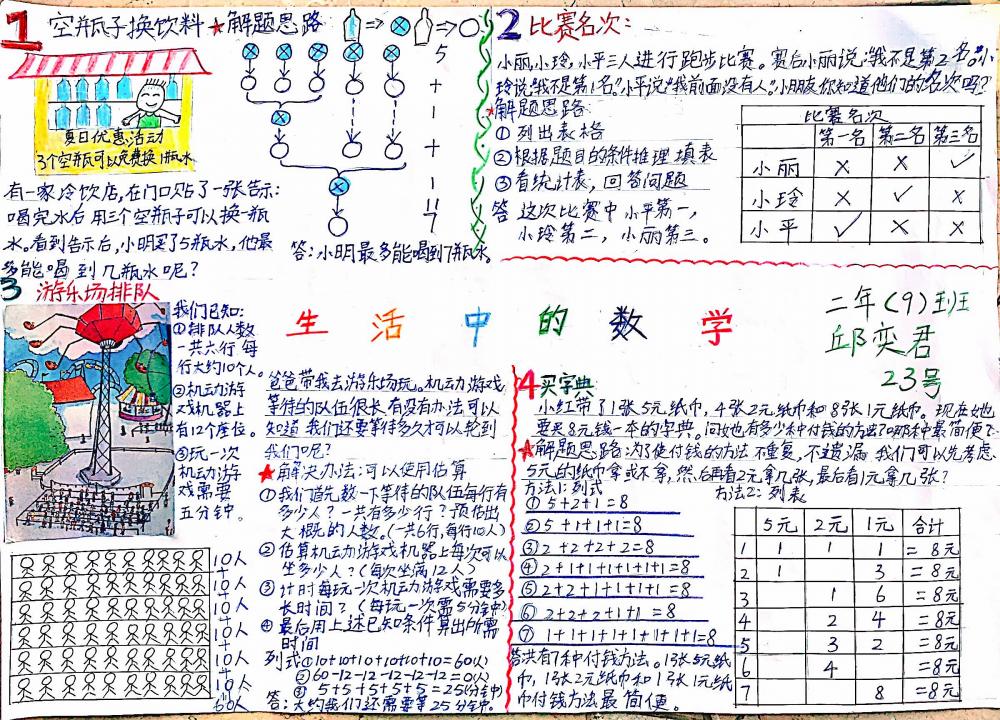 1 空瓶子换饮料 ★解题思路
夏日优惠活动
3个空瓶可以免费换1瓶水
5
+
1
+
1
11
7
有一家冷饮店,在门口贴了一张告示:
喝完水后用三个空瓶子可以换一瓶
水。看到告示后,小明买了5瓶水,他最
多能喝到几瓶水呢?
答:小明最多能喝到7瓶水。
2 比赛名次:
小丽,小玲,小平三人进行跑步比赛。赛后小丽说:“我不是第2名。”小
玲说:“我不是第1名。”小平说:“我前面没有人。”小朋友你知道他们的名次吗?
★解题思路:
①列出表格
②根据题目的条件推理填表
③看统计表,回答问题
答 这次比赛中小平第一,
小玲第二,小丽第三。
比赛名次
第一名 第二名 第三名
小丽 × × ✓
小玲 × ✓ ×
小平 ✓ × ×
3 游乐场排队
我们已知:
①排队人数
一共六行 每
行大约10个人。
②机动游
戏机器上
有12个座位。
③玩一次
机动游
戏需要
五分钟。
10人
+
10人
+
10人
+
10人
+
10人
+
10人
60人
生活中的数学
二年(9)班
邱奕君
23号
爸爸带我去游乐场玩。机动游戏
等待的队伍很长,有没有办法可以
知道我们还要等待多久才可以轮到
我们呢?
★解决办法:可以使用估算
①我们首先数一下等待的队伍每行有
多少人?一共有多少行?预估出
大概的人数。(一共6行,每行10人)
②估算机动游戏机器上每次可以
坐多少人?(每次坐满12人)
③计时每玩一次机动游戏需要多
长时间?(每玩一次需5分钟)
④最后用上述已知条件算出所需
时间
列式①10+10+10+10+10+10=60(人)
②60-12-12-12-12-12=0(人)
③5+5+5+5+5=25(分钟)
答:大约我们还需要等25分钟。
4 买字典
小红带了1张5元纸巾,4张2元纸巾和8张1元纸巾。现在她
要买8元钱一本的字典。问她有多少种付钱的方法?哪种最简便?
★解题思路:为了使付钱的方法不重复,不遗漏 我们可以先考虑
5元的纸巾拿或不拿,然后再看2元拿几张,最后看1元拿几张?
方法1:列式 方法2:列表
①5+2+1=8
②5+1+1+1=8
③2+2+2+2=8
④2+1+1+1+1+1+1=8
⑤2+2+1+1+1+1=8
⑥2+2+2+1+1=8
⑦1+1+1+1+1+1+1+1=8
答:共有7种付钱方法。1张5元纸
巾,1张2元纸巾和1张1元纸
巾付钱方法最简便。
5元 2元 1元 合计
1 1 1 1 =8元
2 1 3 =8元
3 1 6 =8元
4 2 4 =8元
5 3 2 =8元
6 4 =8元
7 8 =8元